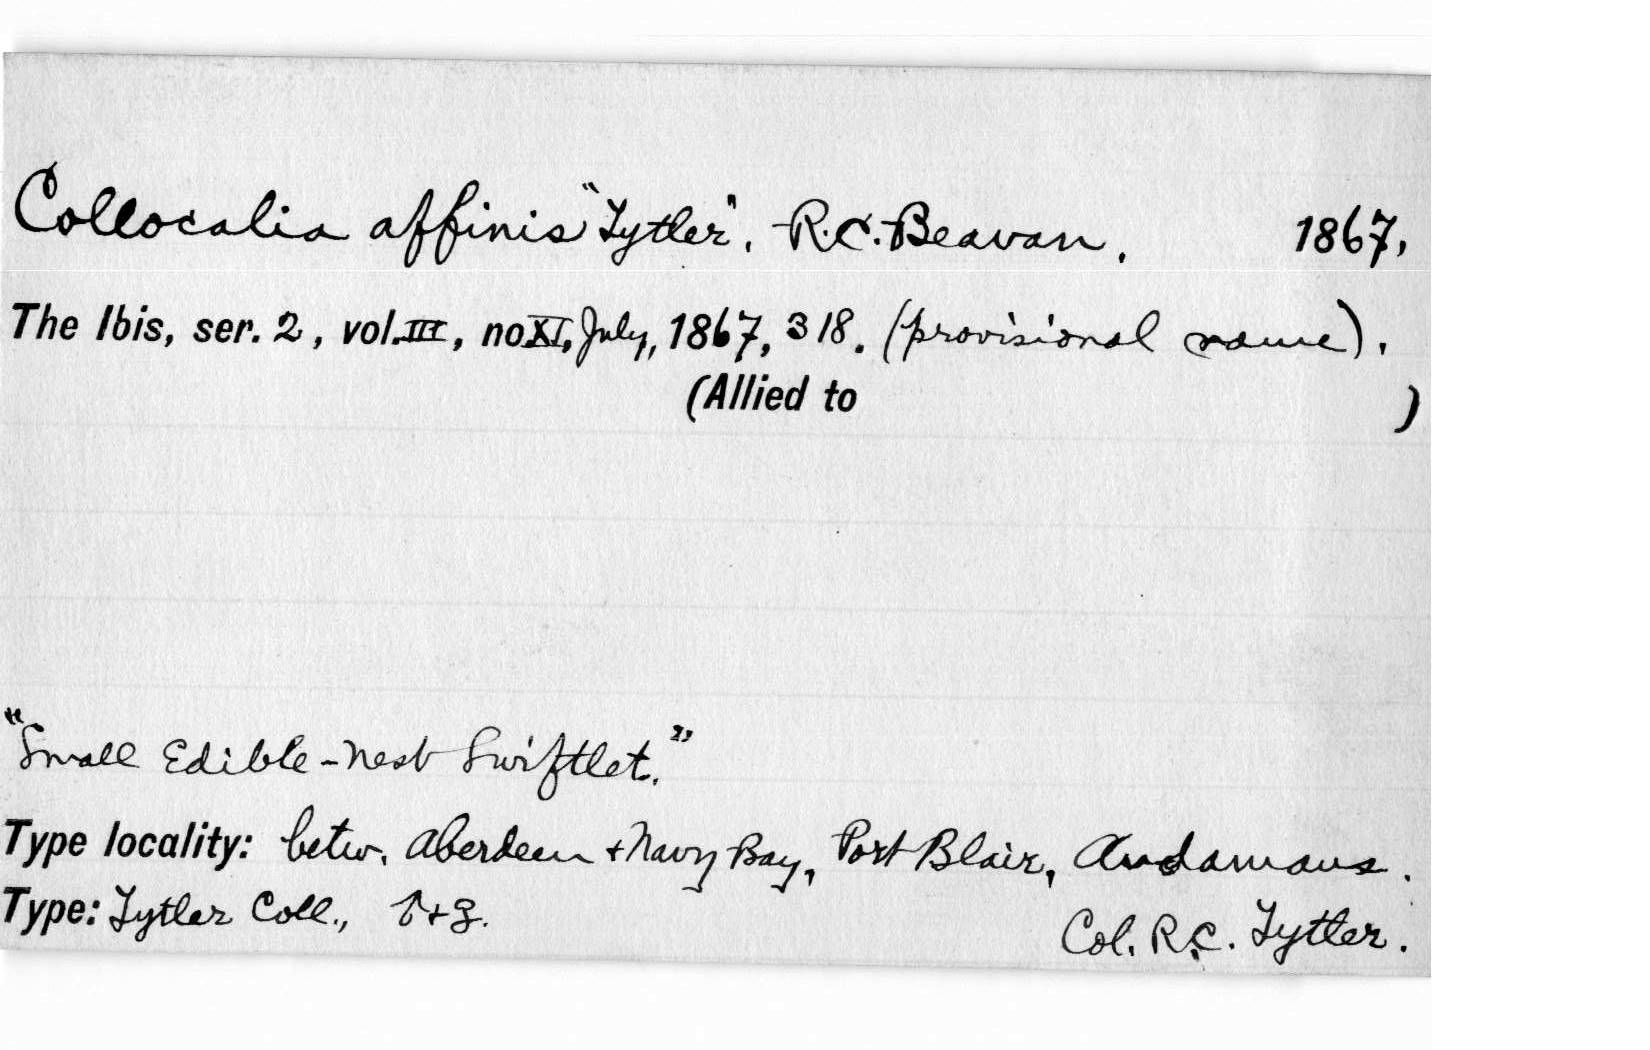 Collocalia affinis "Tytler", R.C. Beavan. 1867,
The Ibis, ser. 2, vol. III, no XI, July, 1867, 318. (provisional name).
(Allied to )
"Small Edible-nest Swiftlet."
Type locality: betw. Aberdeen + Navy Bay, Port Blair, Andamans.
Type: Tytler Coll.,
Col. R.C. Tytler.